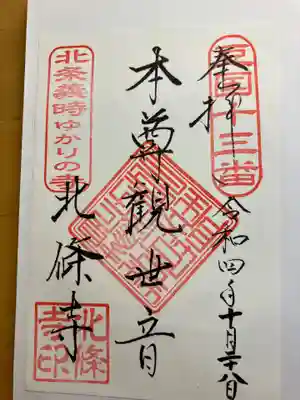 奉拝
豆国十三番
令和四年十月二十八日
本尊観世音
北条義時ゆかりの寺
北條寺
北條寺印